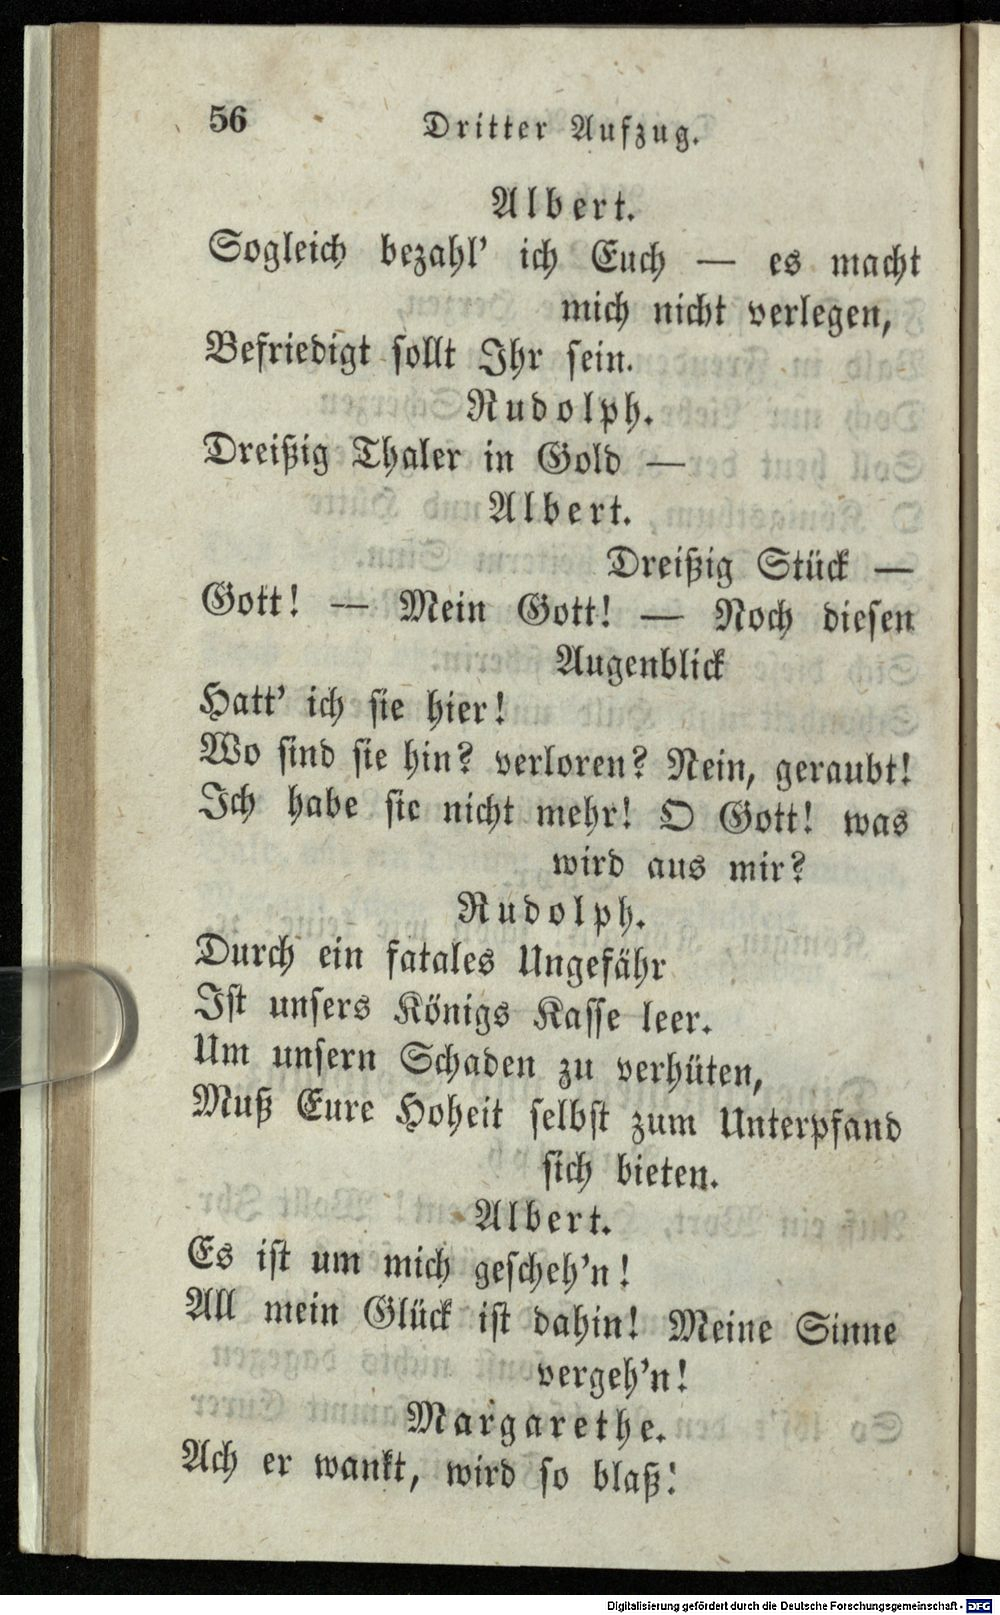 56
Dritter Aufzug.
Albert.
Sogleich bezahl' ich Euch — es macht
mich nicht verlegen,
Befriedigt sollt Ihr sein.
Rudolph.
Dreißig Thaler in Gold —
Albert.
Dreißig Stück —
Gott! — Mein Gott! — Noch diesen
Augenblick
Hatt' ich sie hier!
Wo sind sie hin? verloren? Nein, geraubt!
Ich habe sie nicht mehr! O Gott! was
wird aus mir?
Rudolph.
Durch ein fatales Ungefähr
Ist unsers Königs Kasse leer.
Um unsern Schaden zu verhüten,
Muß Eure Hoheit selbst zum Unterpfand
sich bieten.
Albert.
Es ist um mich gescheh'n!
All mein Glück ist dahin! Meine Sinne
vergeh'n!
Margarethe.
Ach er wankt, wird so blaß!
Digitalisierung gefördert durch die Deutsche Forschungsgemeinschaft - DFG